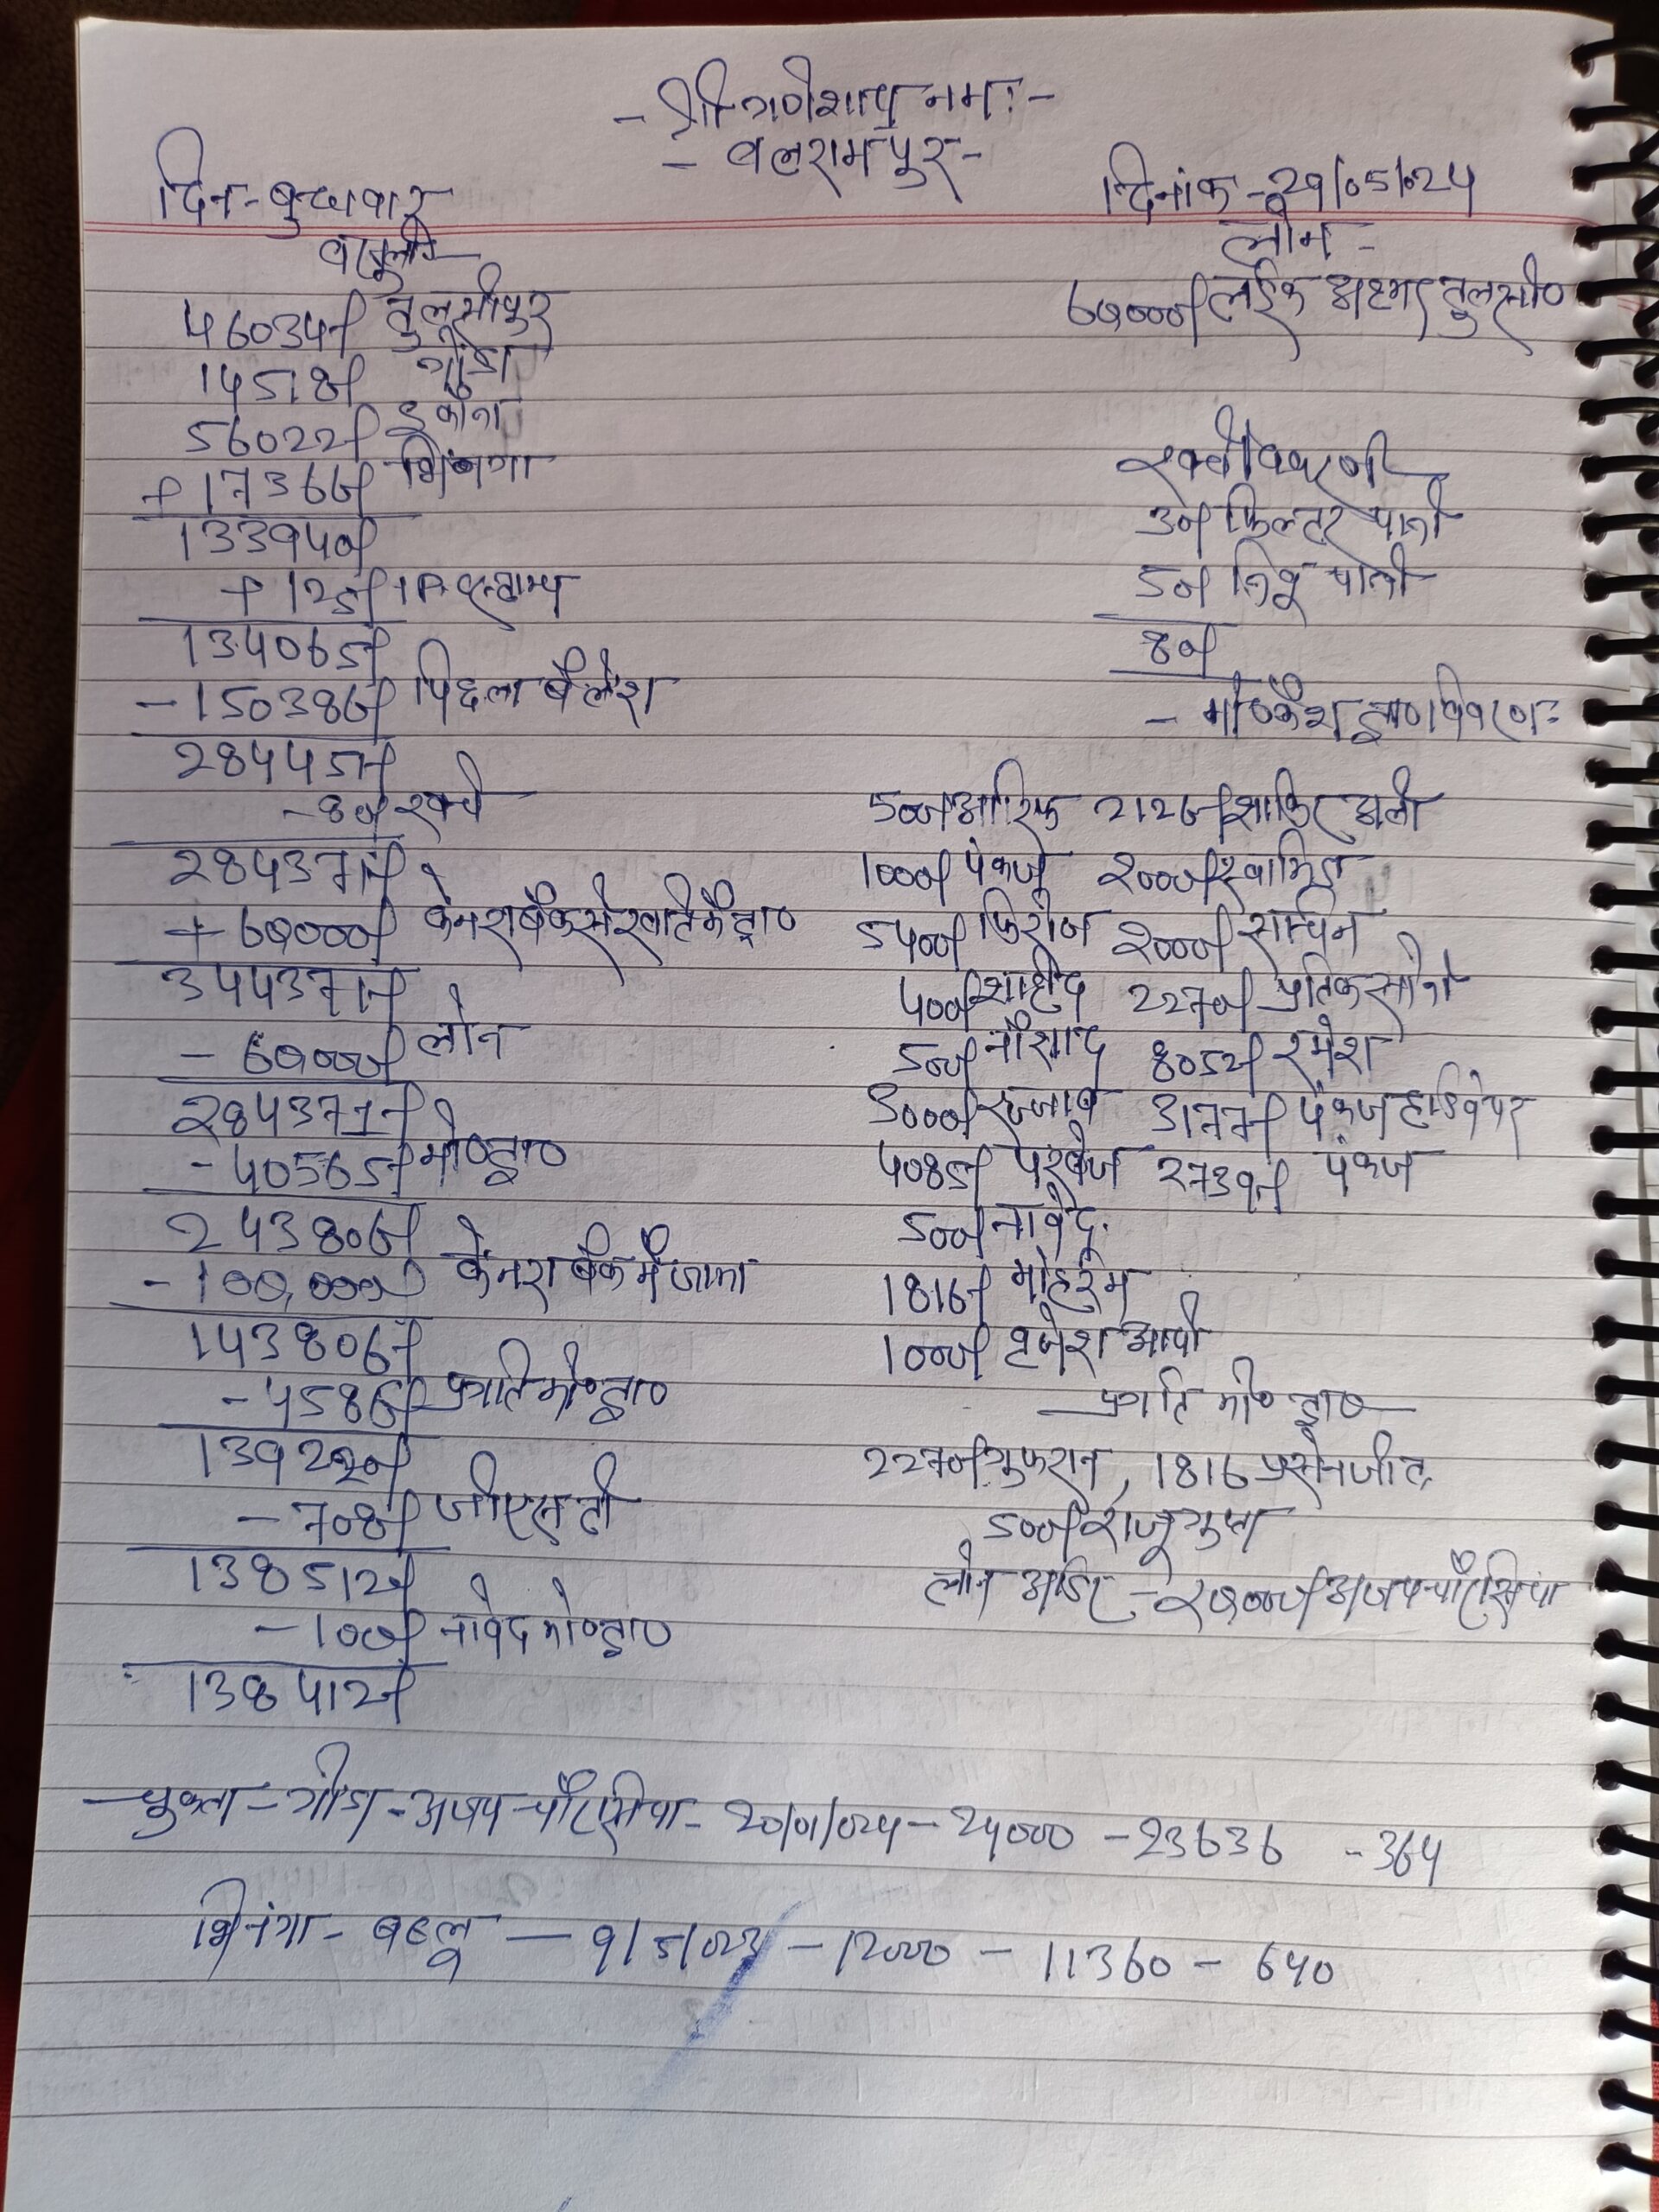 - श्री गणेशाय नमः -
- बलरामपुर -
दिन - बुधवार
दिनांक - 29/05/024
वसूली
46034/- तुलसीपुर
14518/- गोंडा
56022/- इकौना
+ 17366/- भिनगा
133940/-
+ 125/- स्टाम्प
134065/-
- 150386/- पिछला बैलेंश
284451/-
- 80/- खर्च
284371/-
+ 60000/- केनरा बैंक से खाते कै० द्वा०
344371/-
- 60000/- लोन
284371/-
- 40565/- मो० द्वा०
243806/-
- 100,000/- केनरा बैंक मे जामा
143806/-
- 4586/- प्रगति मो० द्वा०
139220/-
- 708/- जीएसटी
138512/-
- 100/- नावेद मो० द्वा०
138412/-
लोन -
60000/- लईक अहमद तुलसी०
खर्च विवरणी
30/- फिल्टर पानी
50/- निबू पानी
80/-
500/- आरिफ 2126/- शाकिर अली
1000/- पंकज 2000/-
5400/- फिरोज 2000/- सचिन
400/- शाहीद 2270/- प्रतिक सोनी
500/- नौसाद 8052/- रमेश
3000/- रज्जाब 3177/- पंकज हार्डवेयर
4085/- परवेज 2739/- पंकज
500/- नावेद
1816/- मोहर्रम
1000/- बृजेश
प्रगति मो० द्वा०
2270/- गुफरान, 1816 प्रसेनजीत
500/- राजू गुप्ता
लोन आडर - 20000/- अजय चौरसिया
चुक्ता - गोंडा - अजय चौरसिया - 20/01/024 - 24000 - 23636 - 364
भिनगा - बबलू - 9/5/023 - 12000 - 11360 - 640